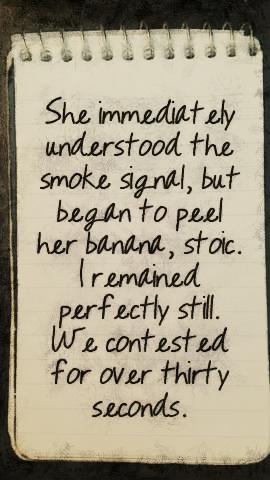 She immediately
understood the
smoke signal, but
began to peel
her banana, stoic.
I remained
perfectly still.
We contested
for over thirty
seconds.